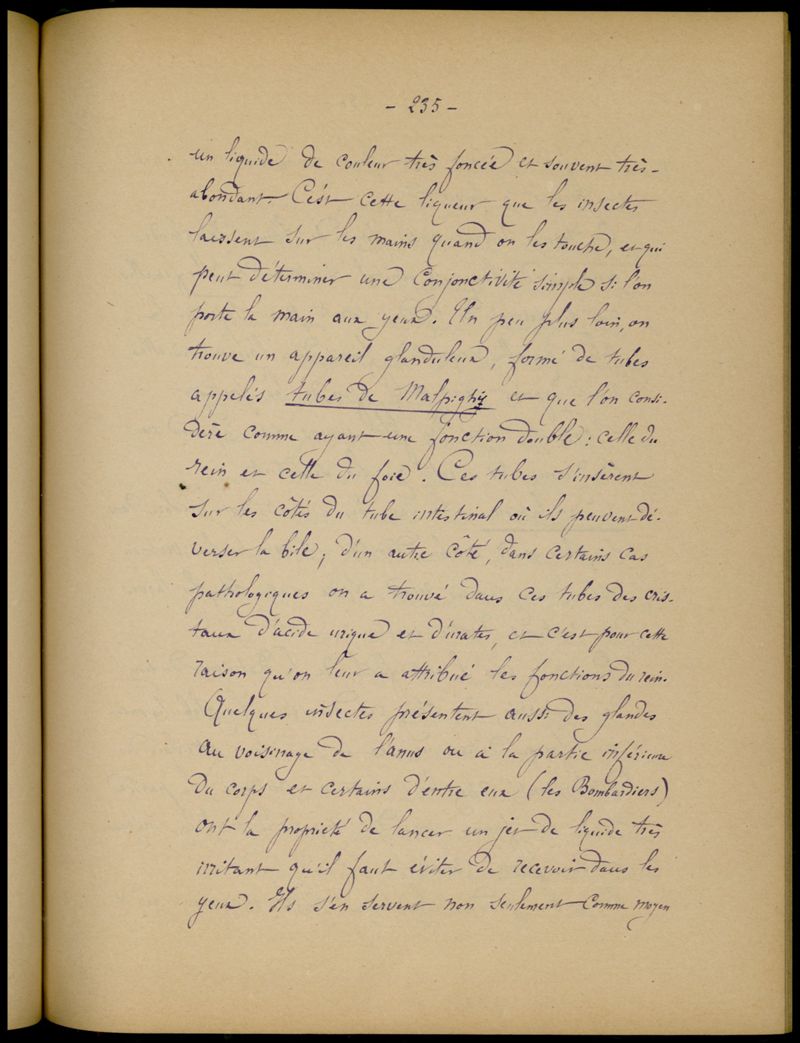 - 235 -
un liquide de couleur très foncée et souvent très-
abondant. C'est cette liqueur que les insectes
laissent sur les mains quand on les touche, et qui
peut déterminer une Conjonctivité simple si l'on
porte la main aux yeux. Un peu plus loin, on
trouve un appareil glanduleux, formé de tubes
appelés tubes de Malpighi et que l'on consi-
dère comme ayant une fonction double : celle du
rein et celle du foie. Ces tubes s'insèrent
sur les côtés du tube intestinal où ils peuvent dé-
verser la bile ; d'un autre côté, dans certains cas
pathologiques on a trouvé dans ces tubes des cris-
taux d'acide urique et d'urates, et c'est pour cette
raison qu'on leur a attribué les fonctions du rein.
Quelques insectes présentent aussi des glandes
au voisinage de l'anus ou à la partie inférieure
du corps et certains d'entre eux (les Bombardiers)
ont la propriété de lancer un jet de liquide très
irritant qu'il faut éviter de recevoir dans les
yeux. Ils s'en servent non seulement comme moyen